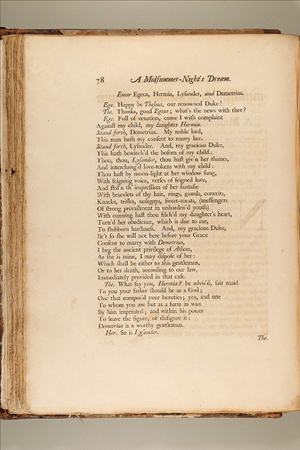 78 A Midsummer-Night's Dream.
Enter Egeus, Hermia, Lysander, and Demetrius.
Ege. Happy be Theseus, our renowned Duke!
The. Thanks, good Egeus; what's the news with thee?
Ege. Full of vexation, come I with complaint
Against my child, my daughter Hermia.
Stand forth, Demetrius. My noble lord,
This man hath my consent to marry her.
Stand forth, Lysander. And, my gracious Duke,
This hath bewitch'd the bosom of my child:
Thou, thou, Lysander, thou hast giv'n her rhimes,
And interchang'd love-tokens with my child:
Thou hast by moon-light at her window sung,
With feigning voice, verses of feigned love,
And stol'n th' impression of her fantasie
With bracelets of thy hair, rings, gawds, conceits,
Knacks, trifles, nosegays, sweet-meats, (messengers
Of strong prevailment in unharden'd youth)
With cunning hast thou filch'd my daughter's heart,
Turn'd her obedience, which is due to me,
To stubborn harshness. And, my gracious Duke,
Be't so she will not here before your Grace
Consent to marry with Demetrius,
I beg the ancient privilege of Athens,
As she is mine, I may dispose of her:
Which shall be either to this gentleman,
Or to her death, according to our law,
Immediately provided in that case.
The. What say you, Hermia? be advis'd, fair maid.
To you your father should be as a God;
One that compos'd your beauties; yea, and one
To whom you are but as a form in wax
By him imprinted; and within his power
To leave the figure, or disfigure it:
Demetrius is a worthy gentleman.
Her. So is Lysander.
The.